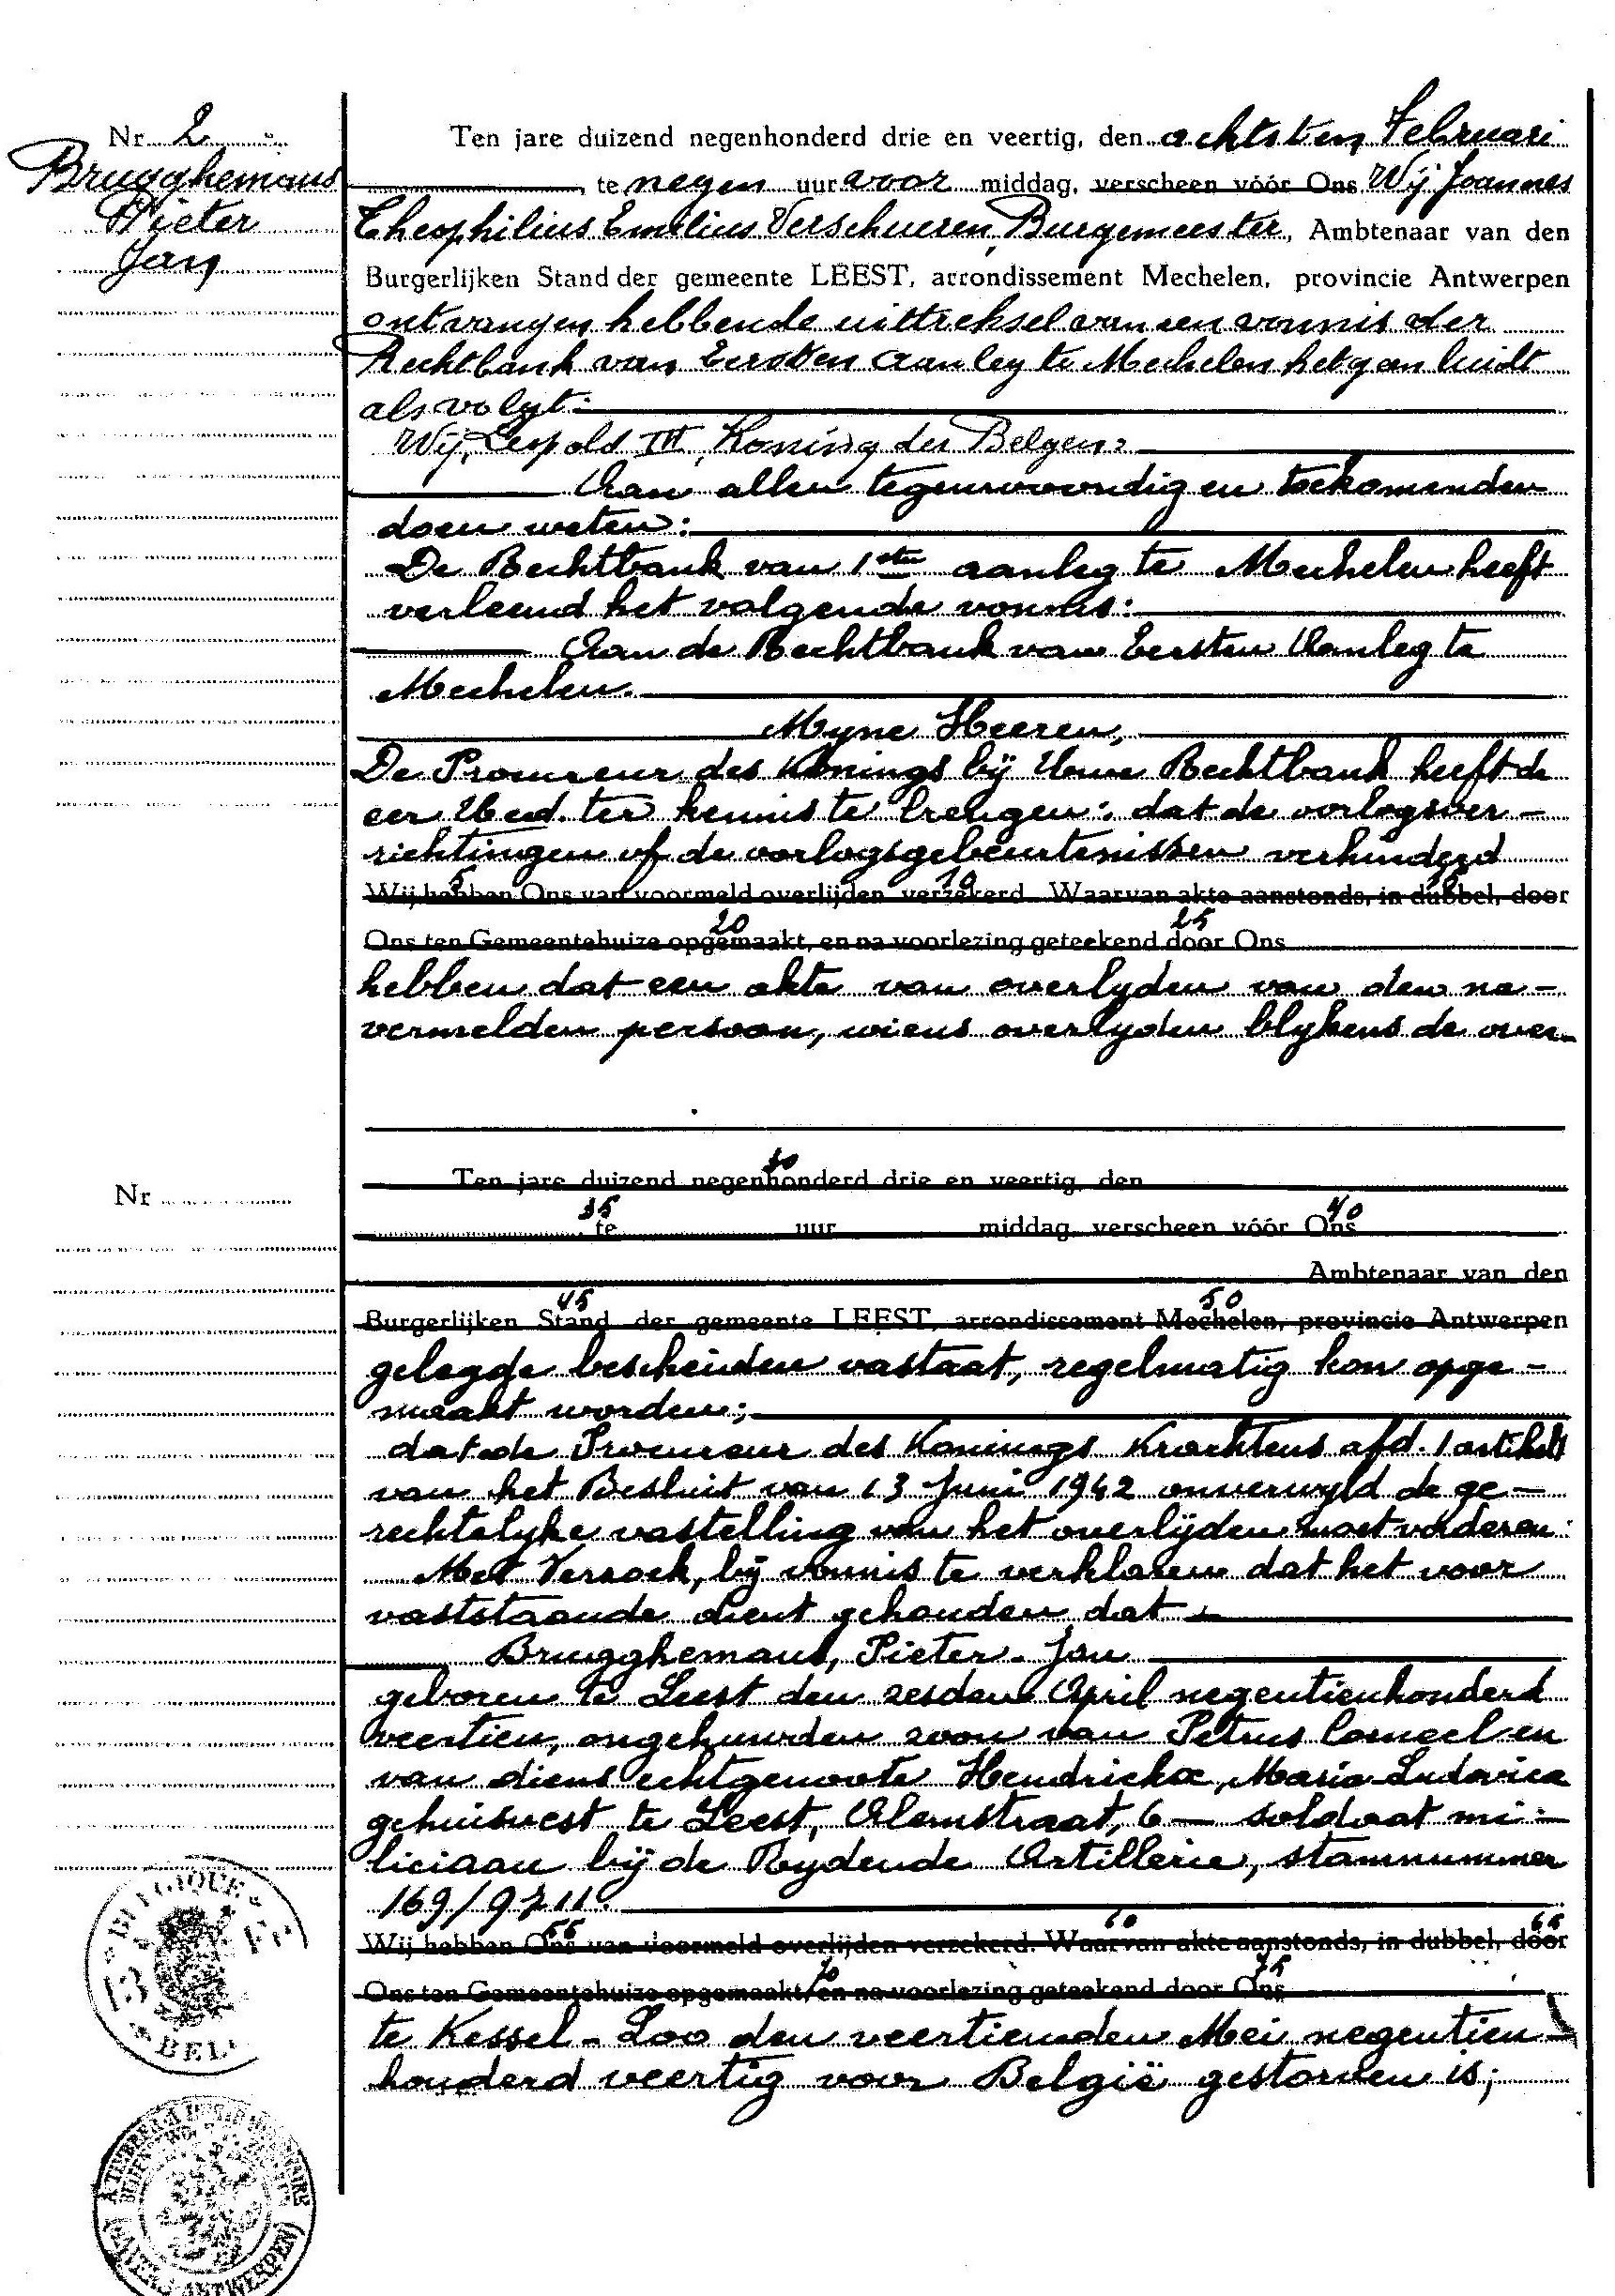 Nr 2
Brugghemans
Pieter
Jan
Ten jare duizend negenhonderd drie en veertig, den achtsten Februari
, te negen uur voor middag, verscheen vóór Ons Wij Joannes
Theophilius Emilius Verschueren, Burgemeester, Ambtenaar van den
Burgerlijken Stand der gemeente LEEST, arrondissement Mechelen, provincie Antwerpen
ontvangen hebbende uittreksel van een vonnis der
Rechtbank van Eersten Aanleg te Mechelen hetgen luidt
als volgt:
Wij, Leopold III, Koning der Belgen:
Aan allen tegenwoordig en toekomenden
doen weten:
De Rechtbank van 1sten aanleg te Mechelen heeft
verleend het volgende vonnis:
Aan de Rechtbank van Eersten Aanleg te
Mechelen.
Myne Heeren,
De Procureur des Konings bij Uwe Rechtbank heeft de
eer Ued. ter kennis te brengen: dat de oorlogsver-
richtingen of de oorlogsgebeurtenissen verhinderd
5 10 15
Wij hebben Ons van voormeld overlijden verzekerd. Waarvan akte aanstonds, in dubbel, door
20 25
Ons ten Gemeentehuize opgemaakt, en na voorlezing geteekend door Ons
hebben dat een akte van overlyden van den na-
vermelden persoon, wiens overlyden blykens de over-
30
Ten jare duizend negenhonderd drie en veertig, den
Nr
35 40
te uur middag, verscheen vóór Ons
Ambtenaar van den
45 50
Burgerlijken Stand der gemeente LEEST, arrondissement Mechelen, provincie Antwerpen
gelegde bescheiden vastaat, regelmatig kon opge-
maakt worden;
dat de Procureur des Konings krachtens afd. 1 artikel
van het Besluit van 13 Juni 1942 onverwyld de ge-
rechtelyke vastelling van het overlijden moet vorderen
Met Verzoek, bij vonnis te verklaren dat het voor
vaststaande dient gehouden dat
Brugghemans, Pieter-Jan
geboren te Leest den zesden April negentienhonderd
veertien, ongehuwden zoon van Petrus Corneel en
van diens echtgenoote Hendrickx, Maria-Ludovica
gehuisvest te Leest, Alemstraat, 6 — soldaat mi-
liciaan bij de Rydende Artillerie, stamnummer
169/9711.
55 60 65
Wij hebben Ons van voormeld overlijden verzekerd. Waarvan akte aanstonds, in dubbel, door
70 75
Ons ten Gemeentehuize opgemaakt, en na voorlezing geteekend door Ons
te Kessel-Loo den veertienden Mei negentien-
honderd veertig voor België gestorven is;
BELGIQUE